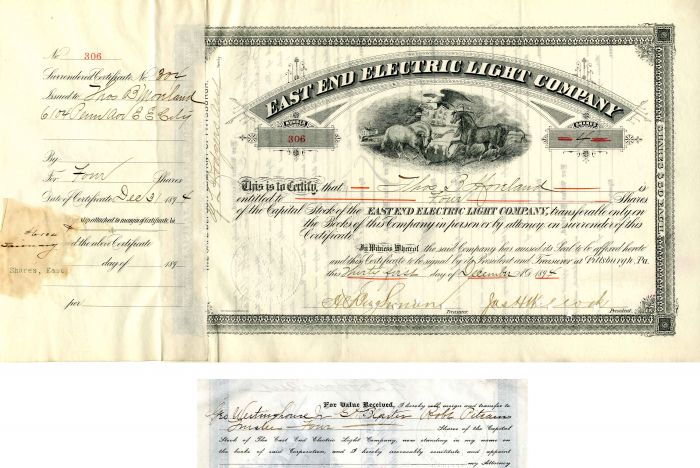 No 306
Surrendered Certificate No 302
Issued to Thos B Moreland
6104 Penn Ave E E City
By
For Four Shares
Date of Certificate, Dec 31 1894
slip attached to margin of Certificate, &
#6104
and the above Certificate
day of 189
Shares, East
per
EAST END ELECTRIC LIGHT COMPANY
NUMBER
306
SHARES
4
This is to Certify, that Thos B Moreland is
entitled to Four Shares
of the Capital Stock of the EAST END ELECTRIC LIGHT COMPANY, transferable only on
the Books of this Company in person or by attorney on surrender of this
Certificate.
In Witness Whereof, the said Company has caused its Seal to be affixed hereto
and this Certificate to be signed by its President and Treasurer at Pittsburgh, Pa.
this Thirty first day of December 1894
Treasurer.
President.
SHARES $50 EACH
For Value Received, I hereby sell, assign and transfer to
Geo Westinghouse Jr Robt Pitcairn
Trustees Four Shares of the Capital
Stock of The East End Electric Light Company, now standing in my name on
the books of said Corporation, and I hereby irrevocably constitute and appoint
my Attorney